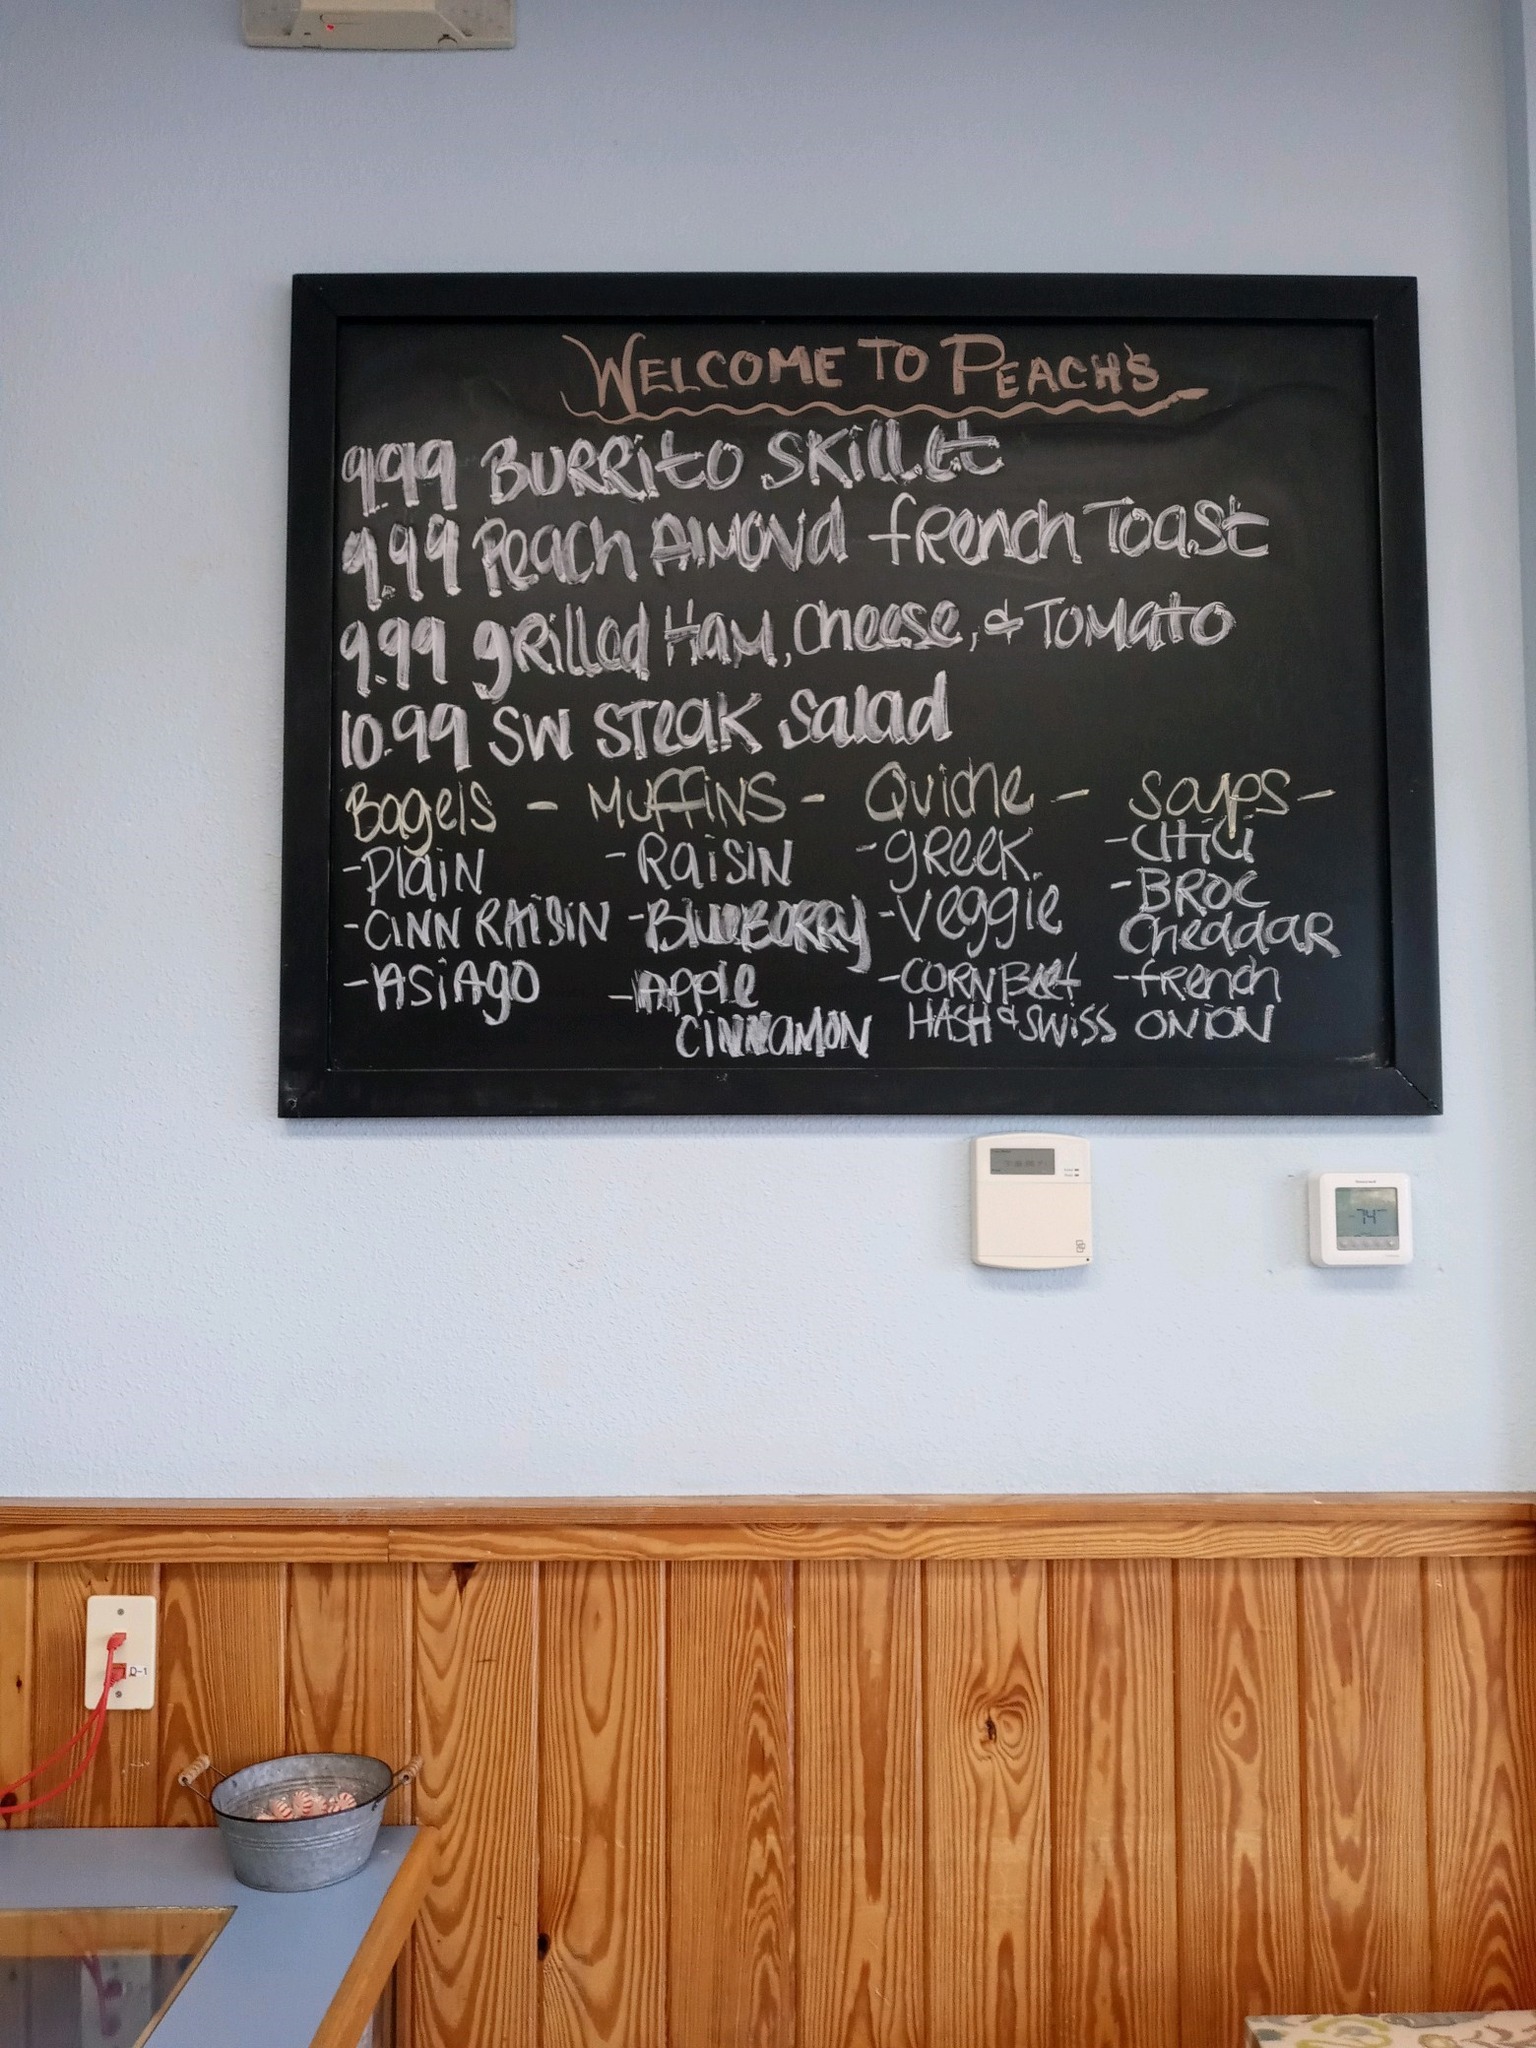 WELCOME TO PEACH'S
9.99 BURRITO SKILLET
9.99 Peach Almond french Toast
9.99 grilled Ham, Cheese, & Tomato
10.99 SW STEAK Salad
Bagels - MUFFINS - Quiche - soups -
-Plain
-CINN RAISIN
-ASIAGO
-RAISIN
-BLUEBERRY
-Apple
CINNAMON
-greek
-veggie
-CORN Beef
HASH & SWISS
-CHILI
-BROC
Cheddar
-french
ONION
Honeywell
74
D-1